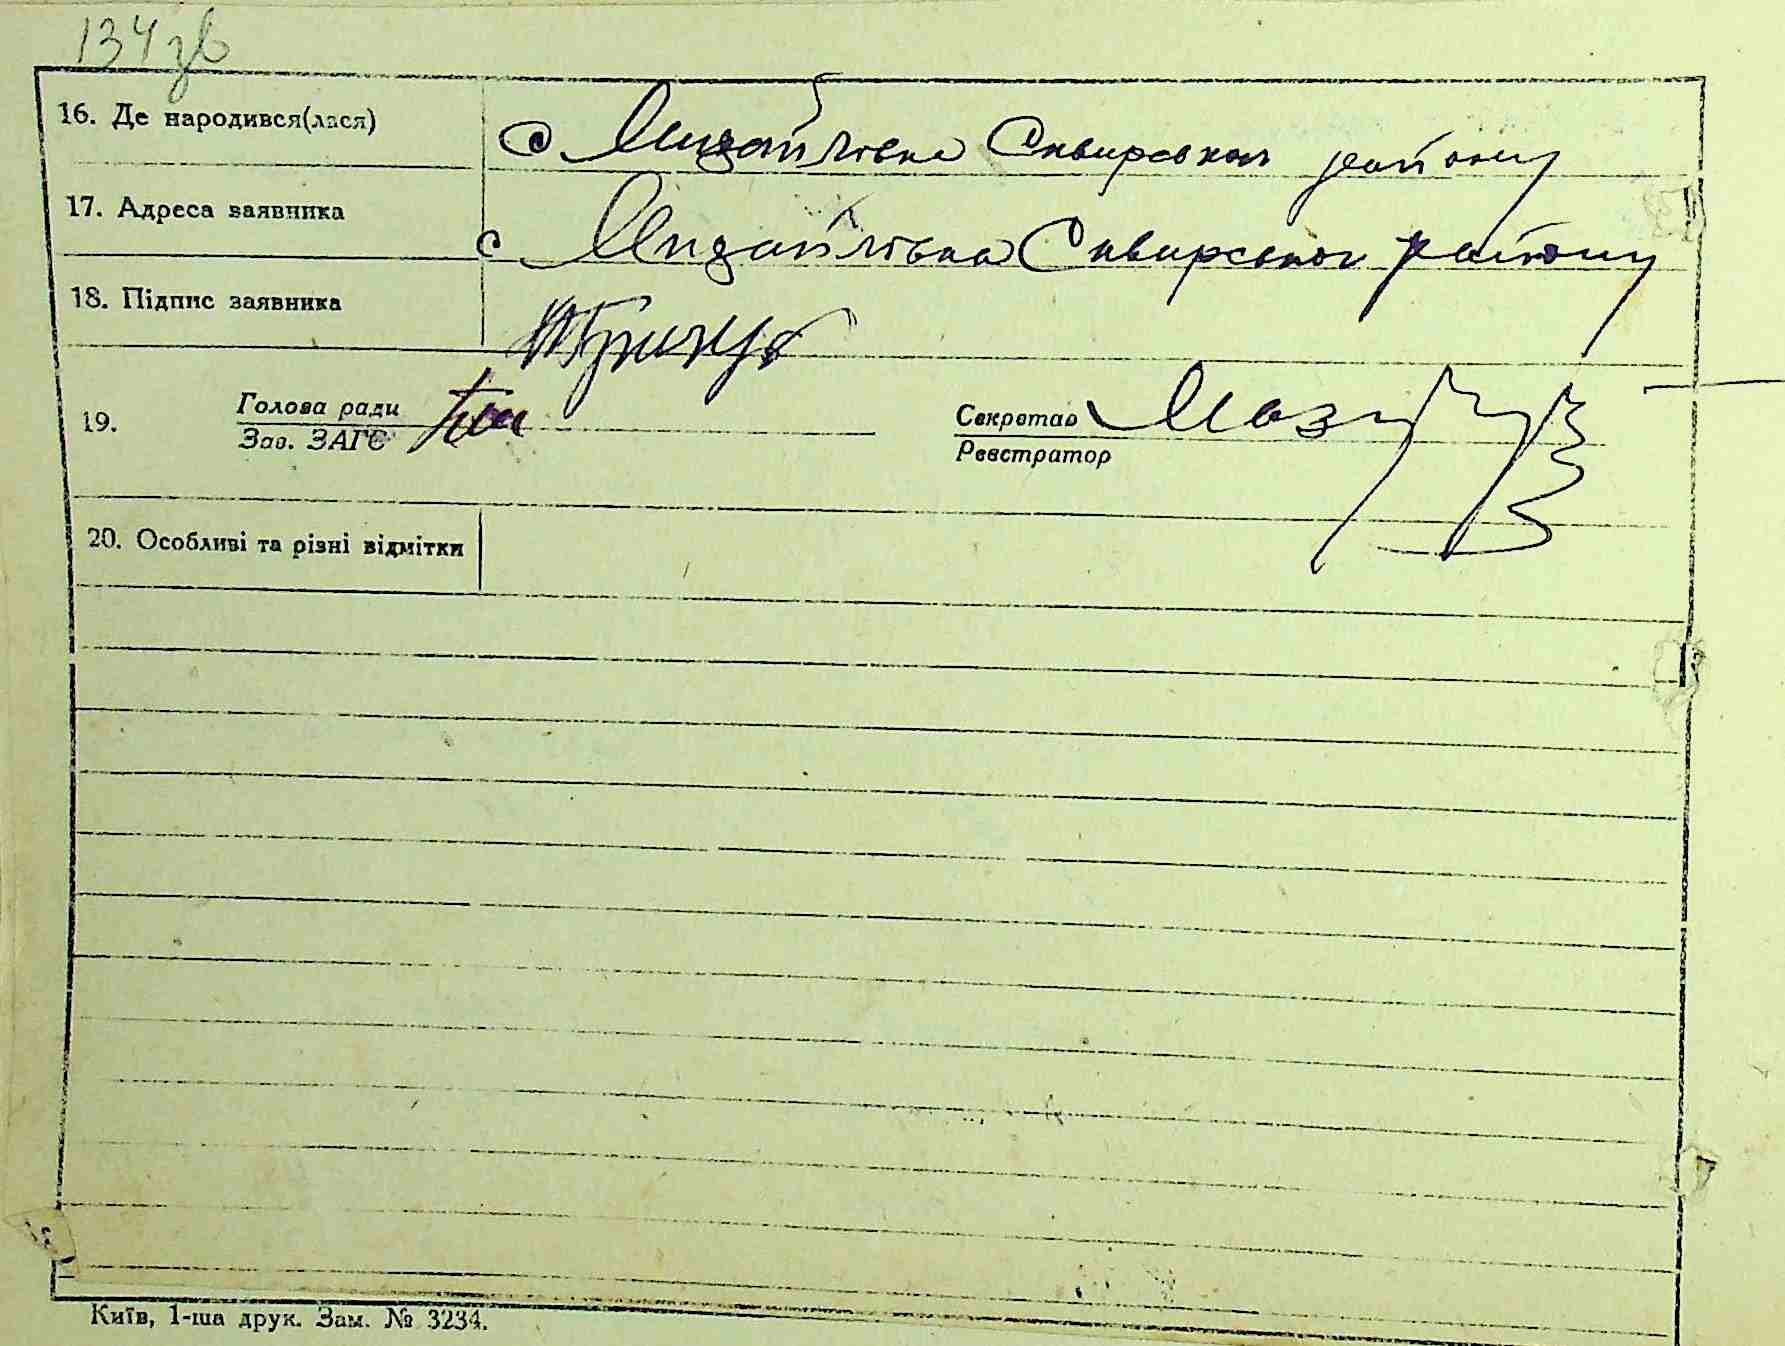 134 зв
16. Де народився(лася) с Михайлівка Сквирського району
17. Адреса заявника с Михайлівка Сквирського району
18. Підпис заявника
19. Голова ради Секретар
Зав. ЗАГС Реєстратор
20. Особливі та різні відмітки
Київ, 1-ша друк. Зам. № 3234.